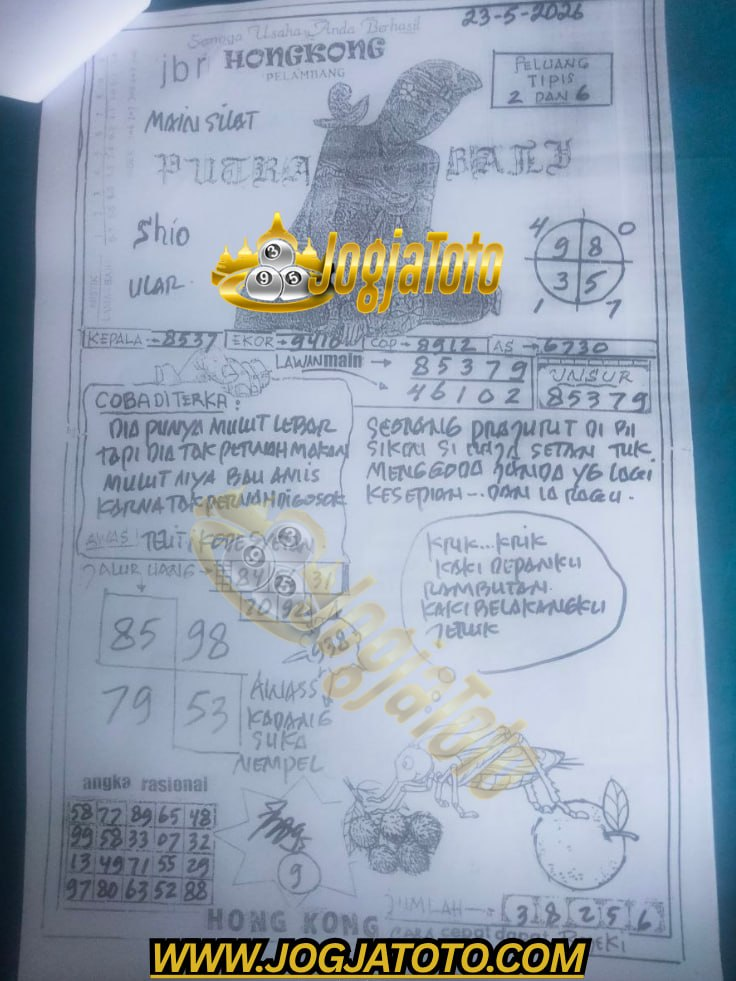 Semoga Usaha Anda Berhasil
23-5-2026
jbr HONGKONG
PELAMBANG
PELUANG
TIPIS
2 DAN 6
MAIN SILAT
PUTRA BALI
Shio
ULAR
4 0
9 8
3 5
1 7
JogjaToto
3
9 5
KEPALA → 8537 EKOR → 9410 COP → 8912 AS → 6730
LAWAN main → 85379
46102
UNSUR
85379
COBA DITERKA :
DIA PUNYA MULUT LEBAR
TAPI DIA TAK PERNAH MAKAN
MULUT NYA BAU AMIS
KARNA TAK PERNAH DIGOSOK
AWAS! TELITI
SEORANG PRAJURIT DI
SIKSA SI RAJA SETAN TUK
MENGGODA JANDA YG LAGI
KESEPIAN -- DAN LA RAGU.
JALUR UANG → 84 31
20 92
938
KRIK...KRIK
KAKI DEPANKU
RAMBUTAN.
KAKI BELAKANGKU
JERUK
85 98
79 53
AWASS
KADANG
SUKA
NEMPEL
JogjaToto
angka rasional
58 77 89 65 48
99 58 33 07 32
13 49 71 55 29
97 80 63 52 88
9
JUMLAH → 3 8 2 5 6
HONG KONG
CARA cepat dapat REJEKI
WWW.JOGJATOTO.COM